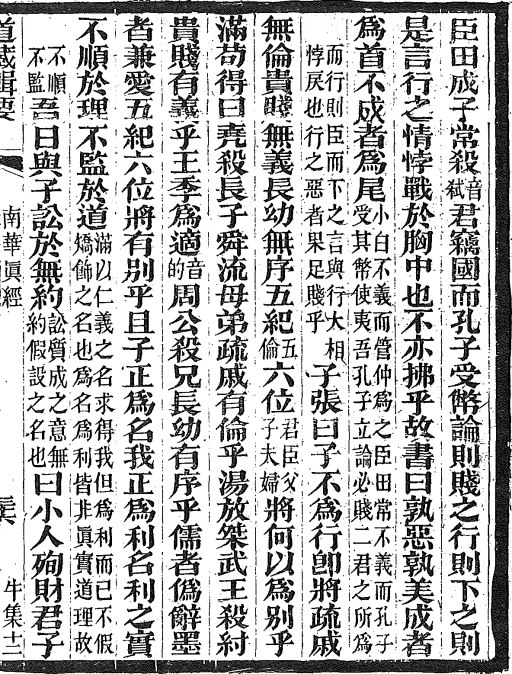 臣田成子常殺音弑君竊國而孔子受幣論則賤之行則下之則
是言行之情悖戰於胸中也不亦拂乎故書曰孰惡孰美成者
爲首不成者爲尾小白不義而管仲爲之臣田常不義而孔子受其幣使夷吾孔子立論必賤二君之所爲
而行則臣而下之言與行大相悖戾也行之惡者果足賤乎子張曰子不爲行卽將疏戚
無倫貴賤無義長幼無序五紀五倫六位君臣父子夫婦將何以爲別乎
滿苟得曰堯殺長子舜流母弟疏戚有倫乎湯放桀武王殺紂
貴賤有義乎王季爲適音的周公殺兄長幼有序乎儒者僞辭墨
者兼愛五紀六位將有別乎且子正爲名我正爲利名利之實
不順於理不監於道滿以仁義之名求得我但爲利而已不假矯飾之名也爲名爲利皆非眞實道理故
不順不監吾日與子訟於無約訟質成之意無約假設之名也曰小人殉財君子
道藏輯要
南華眞經
牛集十二